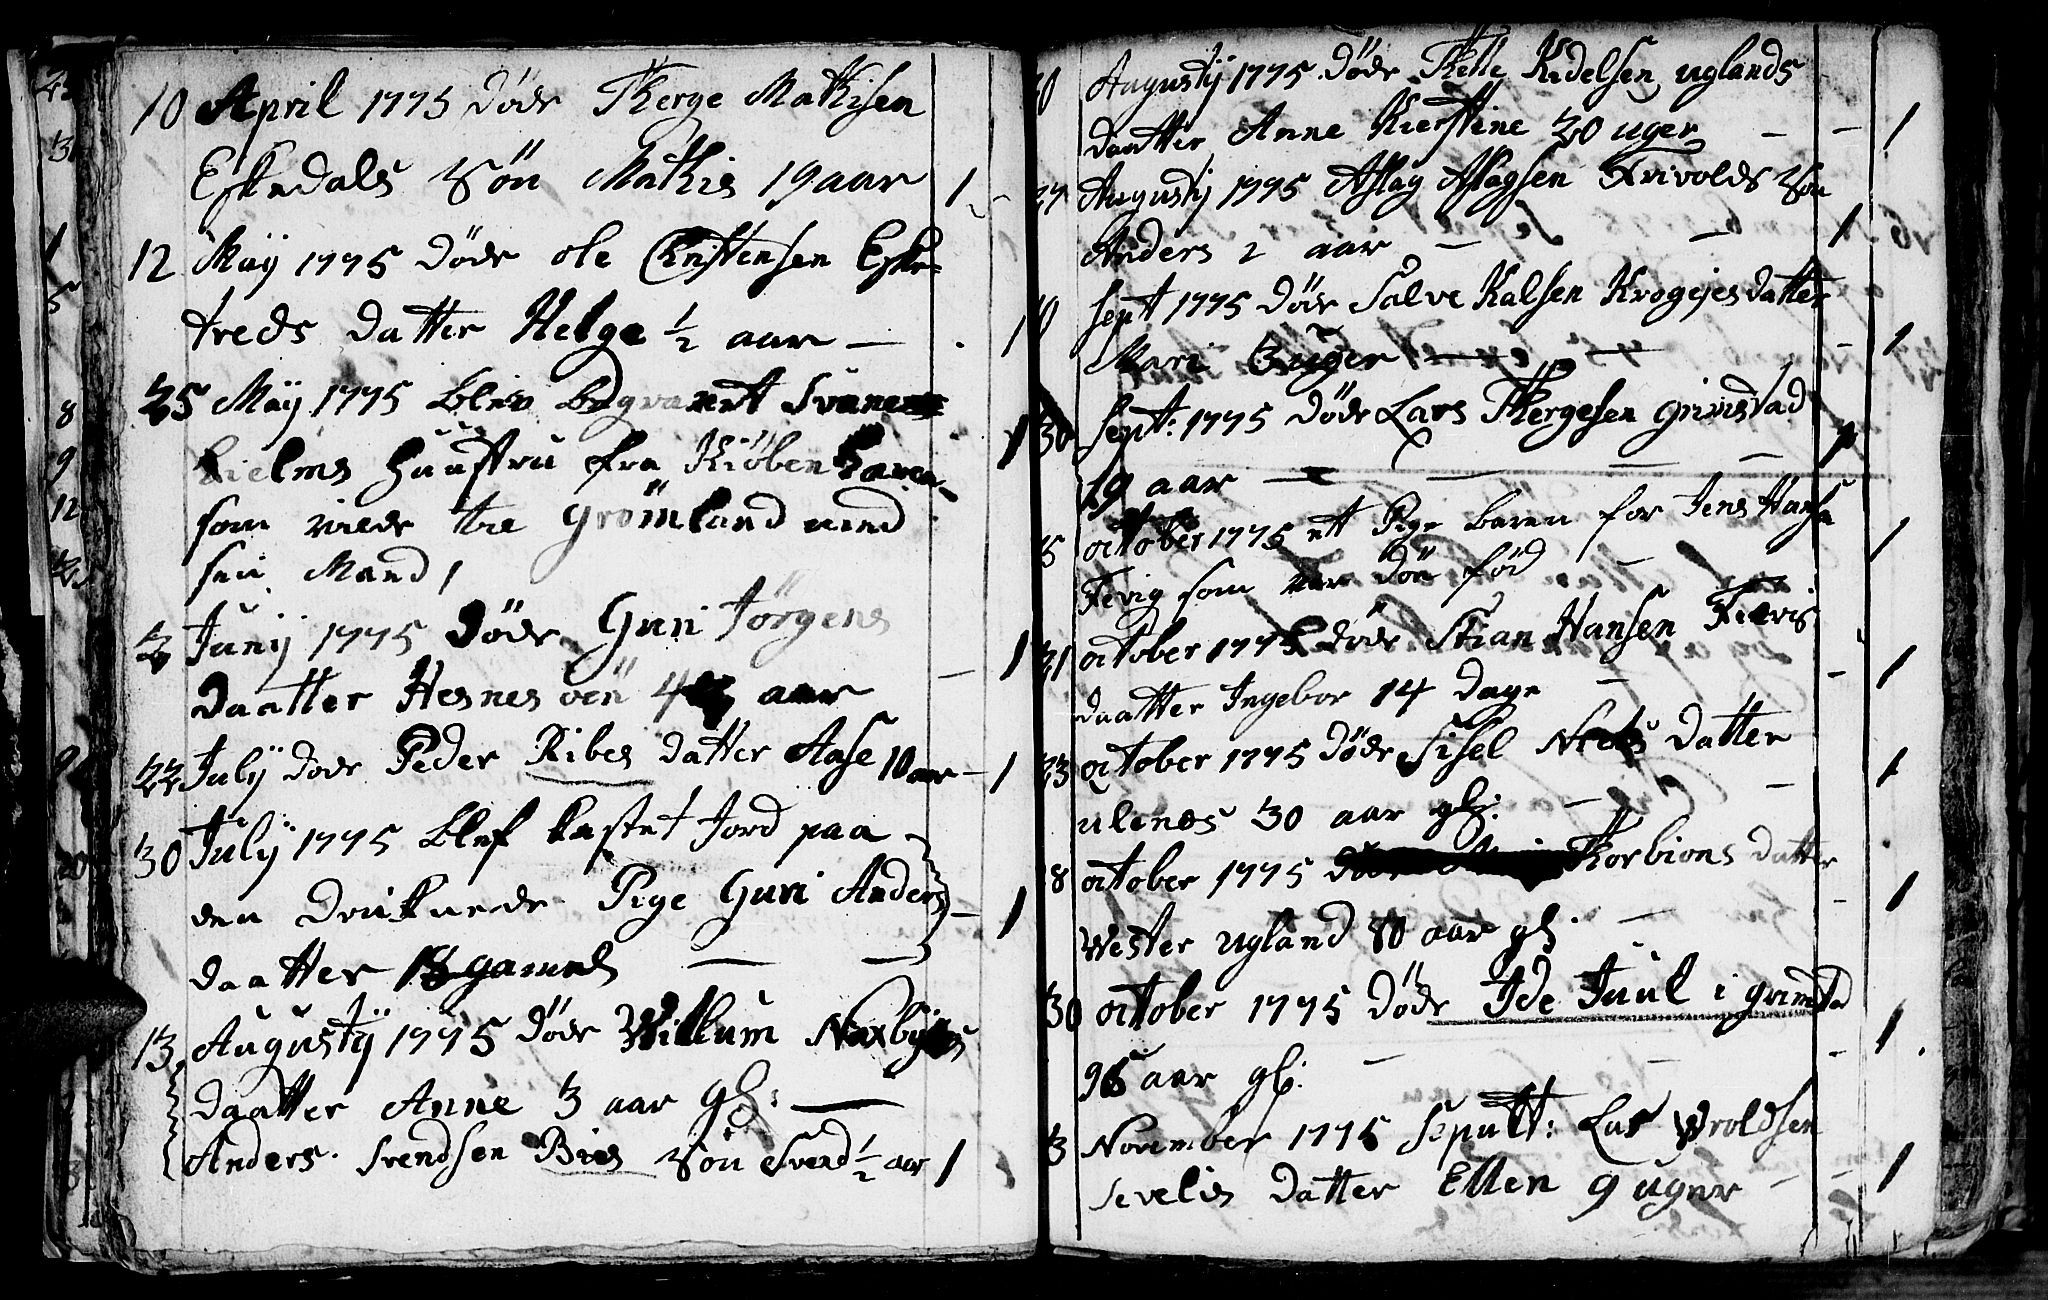 10 April 1775 døde Therge Mathisen
Eskedals Søn Mathis 19 aar 1
12 Maÿ 1775 Døde ole Christensen Eske=
treds datter Helge ½ aar — 1
25 Maÿ 1775 blev begravet Svane
hielms Huustru fra Kiøbenhavn
som vilde til Grønland med
sin Mand, 1
3 Junÿ 1775 Døde Guri Jørgens
daatter Hesnesøen 4 aar — 1
22 Julÿ døde Peder Ribes datter Aase 10 aar — 1
30 Julÿ 1775 blef kastet Jord paa
den Druknede Pige Guri Anders
daatter 18 gamel — — 1
13 Augustÿ 1775 Døde Willum Naxbÿes
daatter Anne 3 aar gl: —
Anders Svendsen Bies Søn Svend ½ aar 1
Augustÿ 1775 døde Thelle Kidelsen uglands
daatter Anne Kierstine 30 uger — — 1
27 Augustÿ 1775 Aslag Aslagsen Frivolds Søn
Anders 2 aar — — 1
10 Sept 1775 Døde Salve Kalsen Krogejes datter
Mari 3 uger — — — 1
30 Sept: 1775 døde Lars Thergesen grimstad
19 aar — — — — 1
5 october 1775 et Pige baren for Jens Hansen
Fevig som var død fød — 1
21 october 1775 døde Stian Hansen Fævig
daatter Ingebor 14 Dage — — 1
23 october 1775 Døde Sisel Neels Datter
ulenes 30 aar gl: — — 1
8 october 1775 Thorbions datter
Wester ugland 80 aar gl: — — 1
30 october 1775 Døde Ide Juul i grimstad
95 aar gl: — — 1
3 November 1775 Sepult: Lars Wroldsen
sevelis datter Ellen 9 uger — — 1